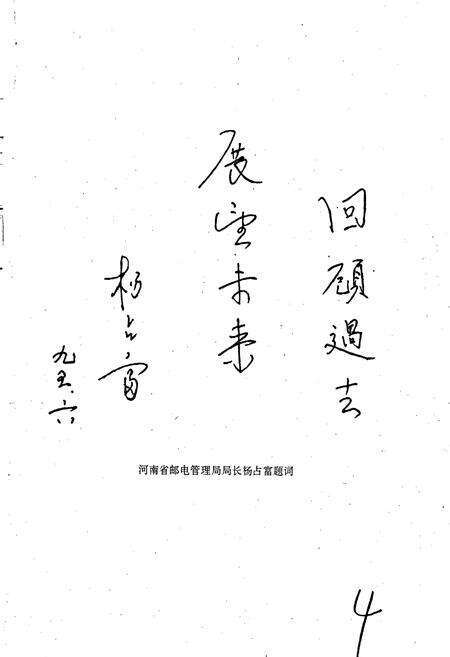 回顾過去
展望未来
杨占富
九五.六
河南省邮电管理局局长杨占富题词
4